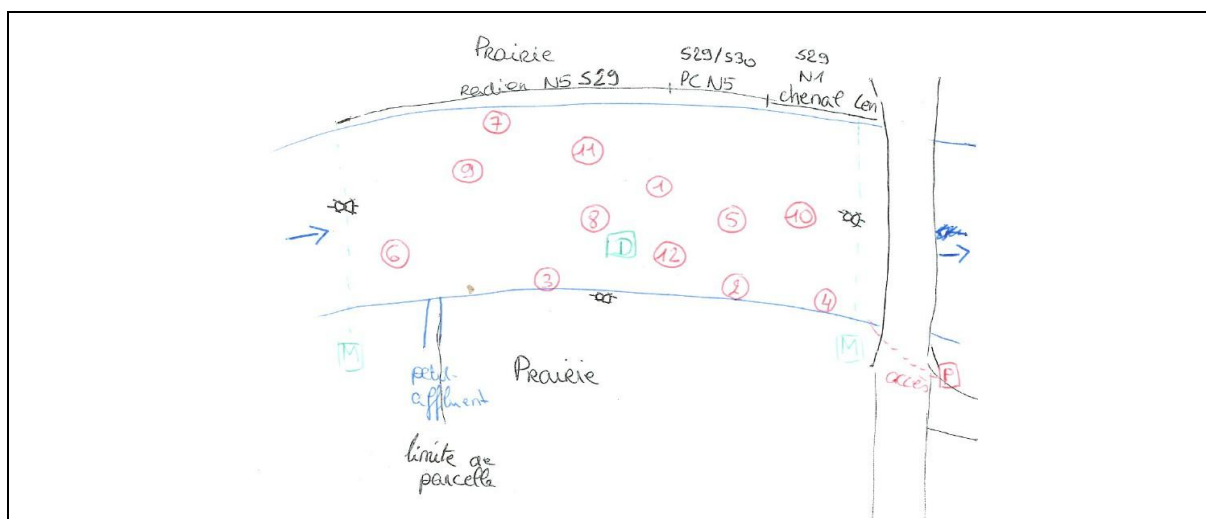 Prairie
Radier N5 S29
S29/S30
PC N5
S29
N1
chenal len
7
11
9
1
8
5
10
6
D
12
3
2
4
M
M
petit
affluent
Prairie
accès
P
limite de
parcelle